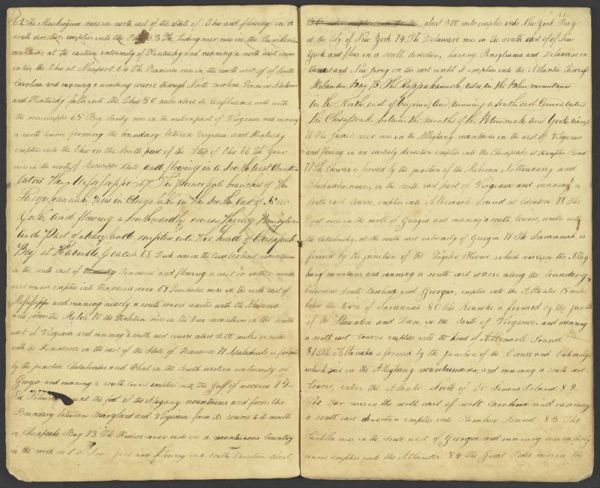 62 The Muskingum rises in north east of the State of Ohio and flowing in a
south direction empties into the Ohio 63 The Licking river rises in the Cumberland
mountains at the eastern extremity of Kentucky and running a north west course
enters the Ohio at Newport 64 The
Carolina and running a winding course through North carolina Tennessee Alabama
and Kentucky falls into the Ohio 50 miles above its confluence with
the mississippi 65 Big Sandy rises in the western part of Virginia and running
a north course forming the boundary between Virginia and Kentucky
empties into the Ohio in the South part of the State of Ohio 66 The Yazoo
rises in the north of Mississippi State and flowing in a South west direction
enters the Mississippi 67 The principal branches of the
Susquehannah rises in Otsego lake in the South East of New
York, and flowing a southwardly course through Pennsylvania
and Part of Maryland empties into the head of Chesapeak
Bay at Havre de Grace 68 Duck rises in the Cumberland mountains
in the south east of Tennessee and flowing a west or north
west course empties into Tennessee river 69 Tombecbee rises in the north east of
Mississippi and running nearly a south course unites with the Alabama
and forms the Mobile 70 the Holston rises in the Iron mountains in the south
west of Virginia and running a south west course about 200 miles unites
with the Tennessee in the east of the State of Tennessee 71 Apalachicola is formed
by the junction Chatahoochee and Flint in the South western extremity of
Georgia and running a south course empties into the Gulf of mexico 72
The Potomac at the foot of the Alegany mountains and forms the
Boundary between Maryland and Virginia from its source to its mouth
in Chesapeake Bay 73 The Hudson river rises in a mountainous Country
in the north east of New York and flowing in a south direction about
about 300 miles empties into New York Bay
at the City of New York 74 The Delaware rises in the south east of New
York and flows in a south direction, having Pensylvania and Delaware on
the west and New Jersey on the east until it empties into the Atlantic through
Delaware Bay 75 The Rappahannock, rises in the Blue mountains
in the North east of Virginia and running a South east Course enters
the Chesapeake between the mouths of the Potomack and York rivers
76 The James river rises in the Alleghany mountains in the west of Virginia
and flowing in an easterly direction empties into the Chesapeake at Hampton Road
77 The Chowan is formed by the junction of the Meherin, Nottaway and
Blackwater rivers, in the south east part of Virginia and running a
south east Course, empties into Albemarle Sound at Edenton 78 The
Flint rises in the north of Georgia and running a south Course, unites with
the Catahoochy, at the south west extremity of Georgia 79 The Savannah is
formed by the junction of the Tugeloo Keowe which rises in the Alleg
hany mountains and running a south east course along the boundary
between South Carolina and Georgia, empties into the Atlantic 18 miles
below the town of Savannah 80 The Roanoke is formed by the junction
of the Staunton and Dan, in the South of Virginia, and running
a south east course empties into the head of Albemarle Sound
81 The Altamaha is formed by the junction of the Oconee and Oakmulgee
which rise in the Alleghany mountains and running a south east
course, enters the Atlantic North of St Simons Island 82.
The Tar rises in the north east of north Carolina and running
a south east direction empties into Pamlico Sound 83 The
Santilla rises in the south west of Georgia and running an easterly
course empties into the Atlantic 84 The Great Pedee rises in the